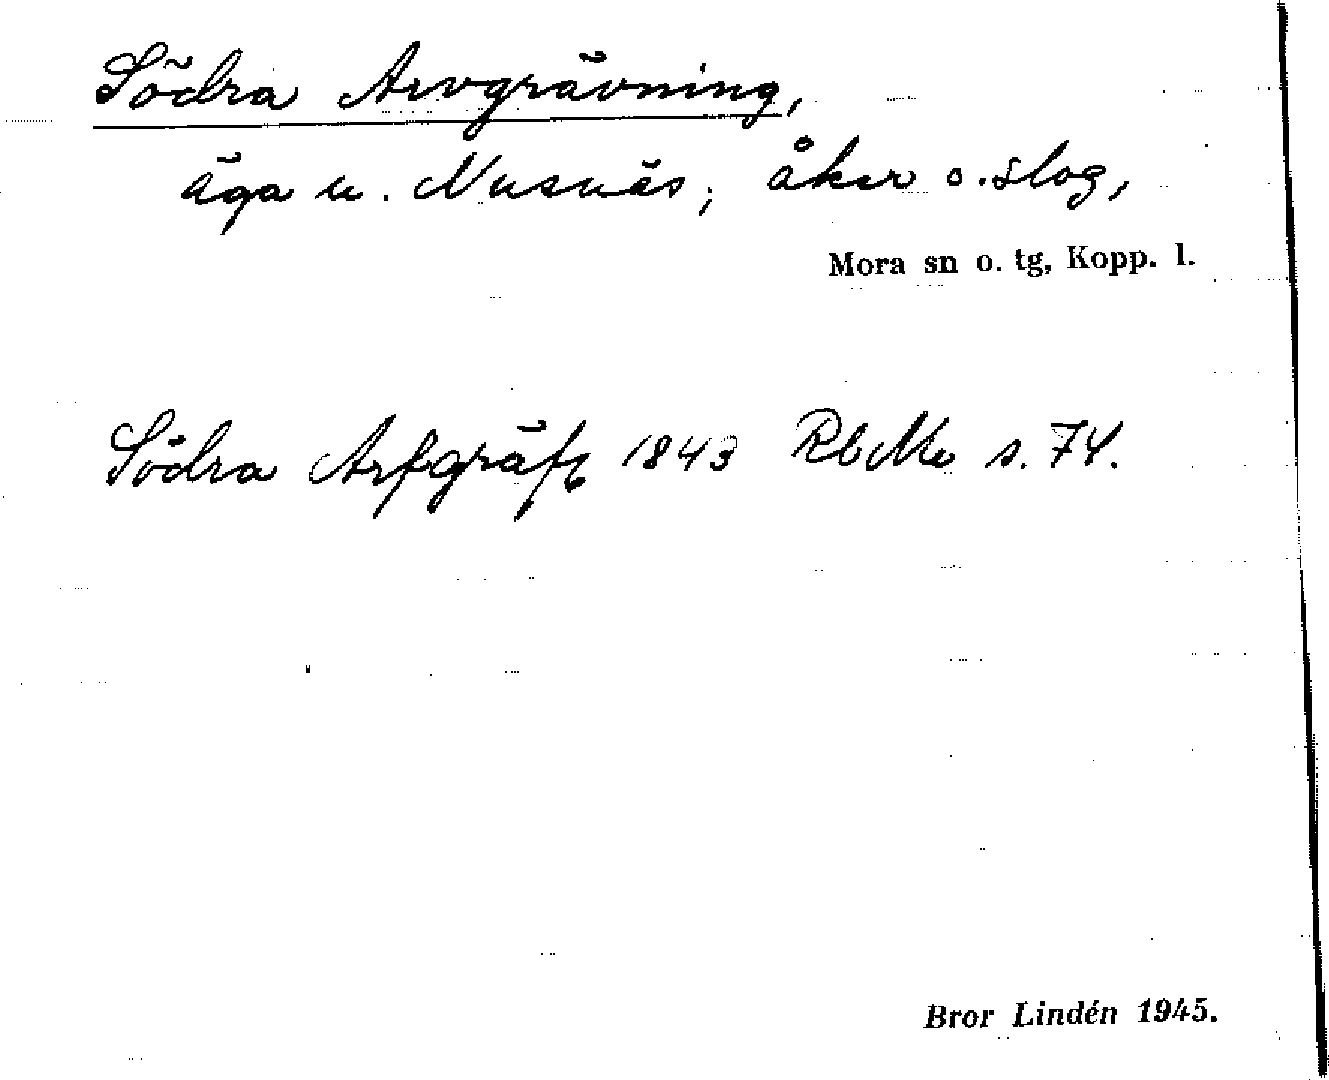 Södra Arvgrävning,
äga u. Nusnäs; åker o. slog,
Mora sn o. tg, Kopp. l.
Södra Arfgräfg 1843 RbMo s. 74.
Bror Lindén 1945.